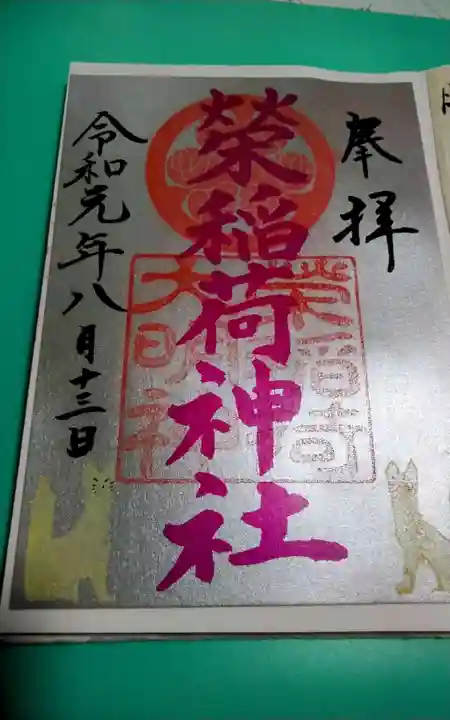 奉拝
榮稲荷神社
令和元年八月十三日